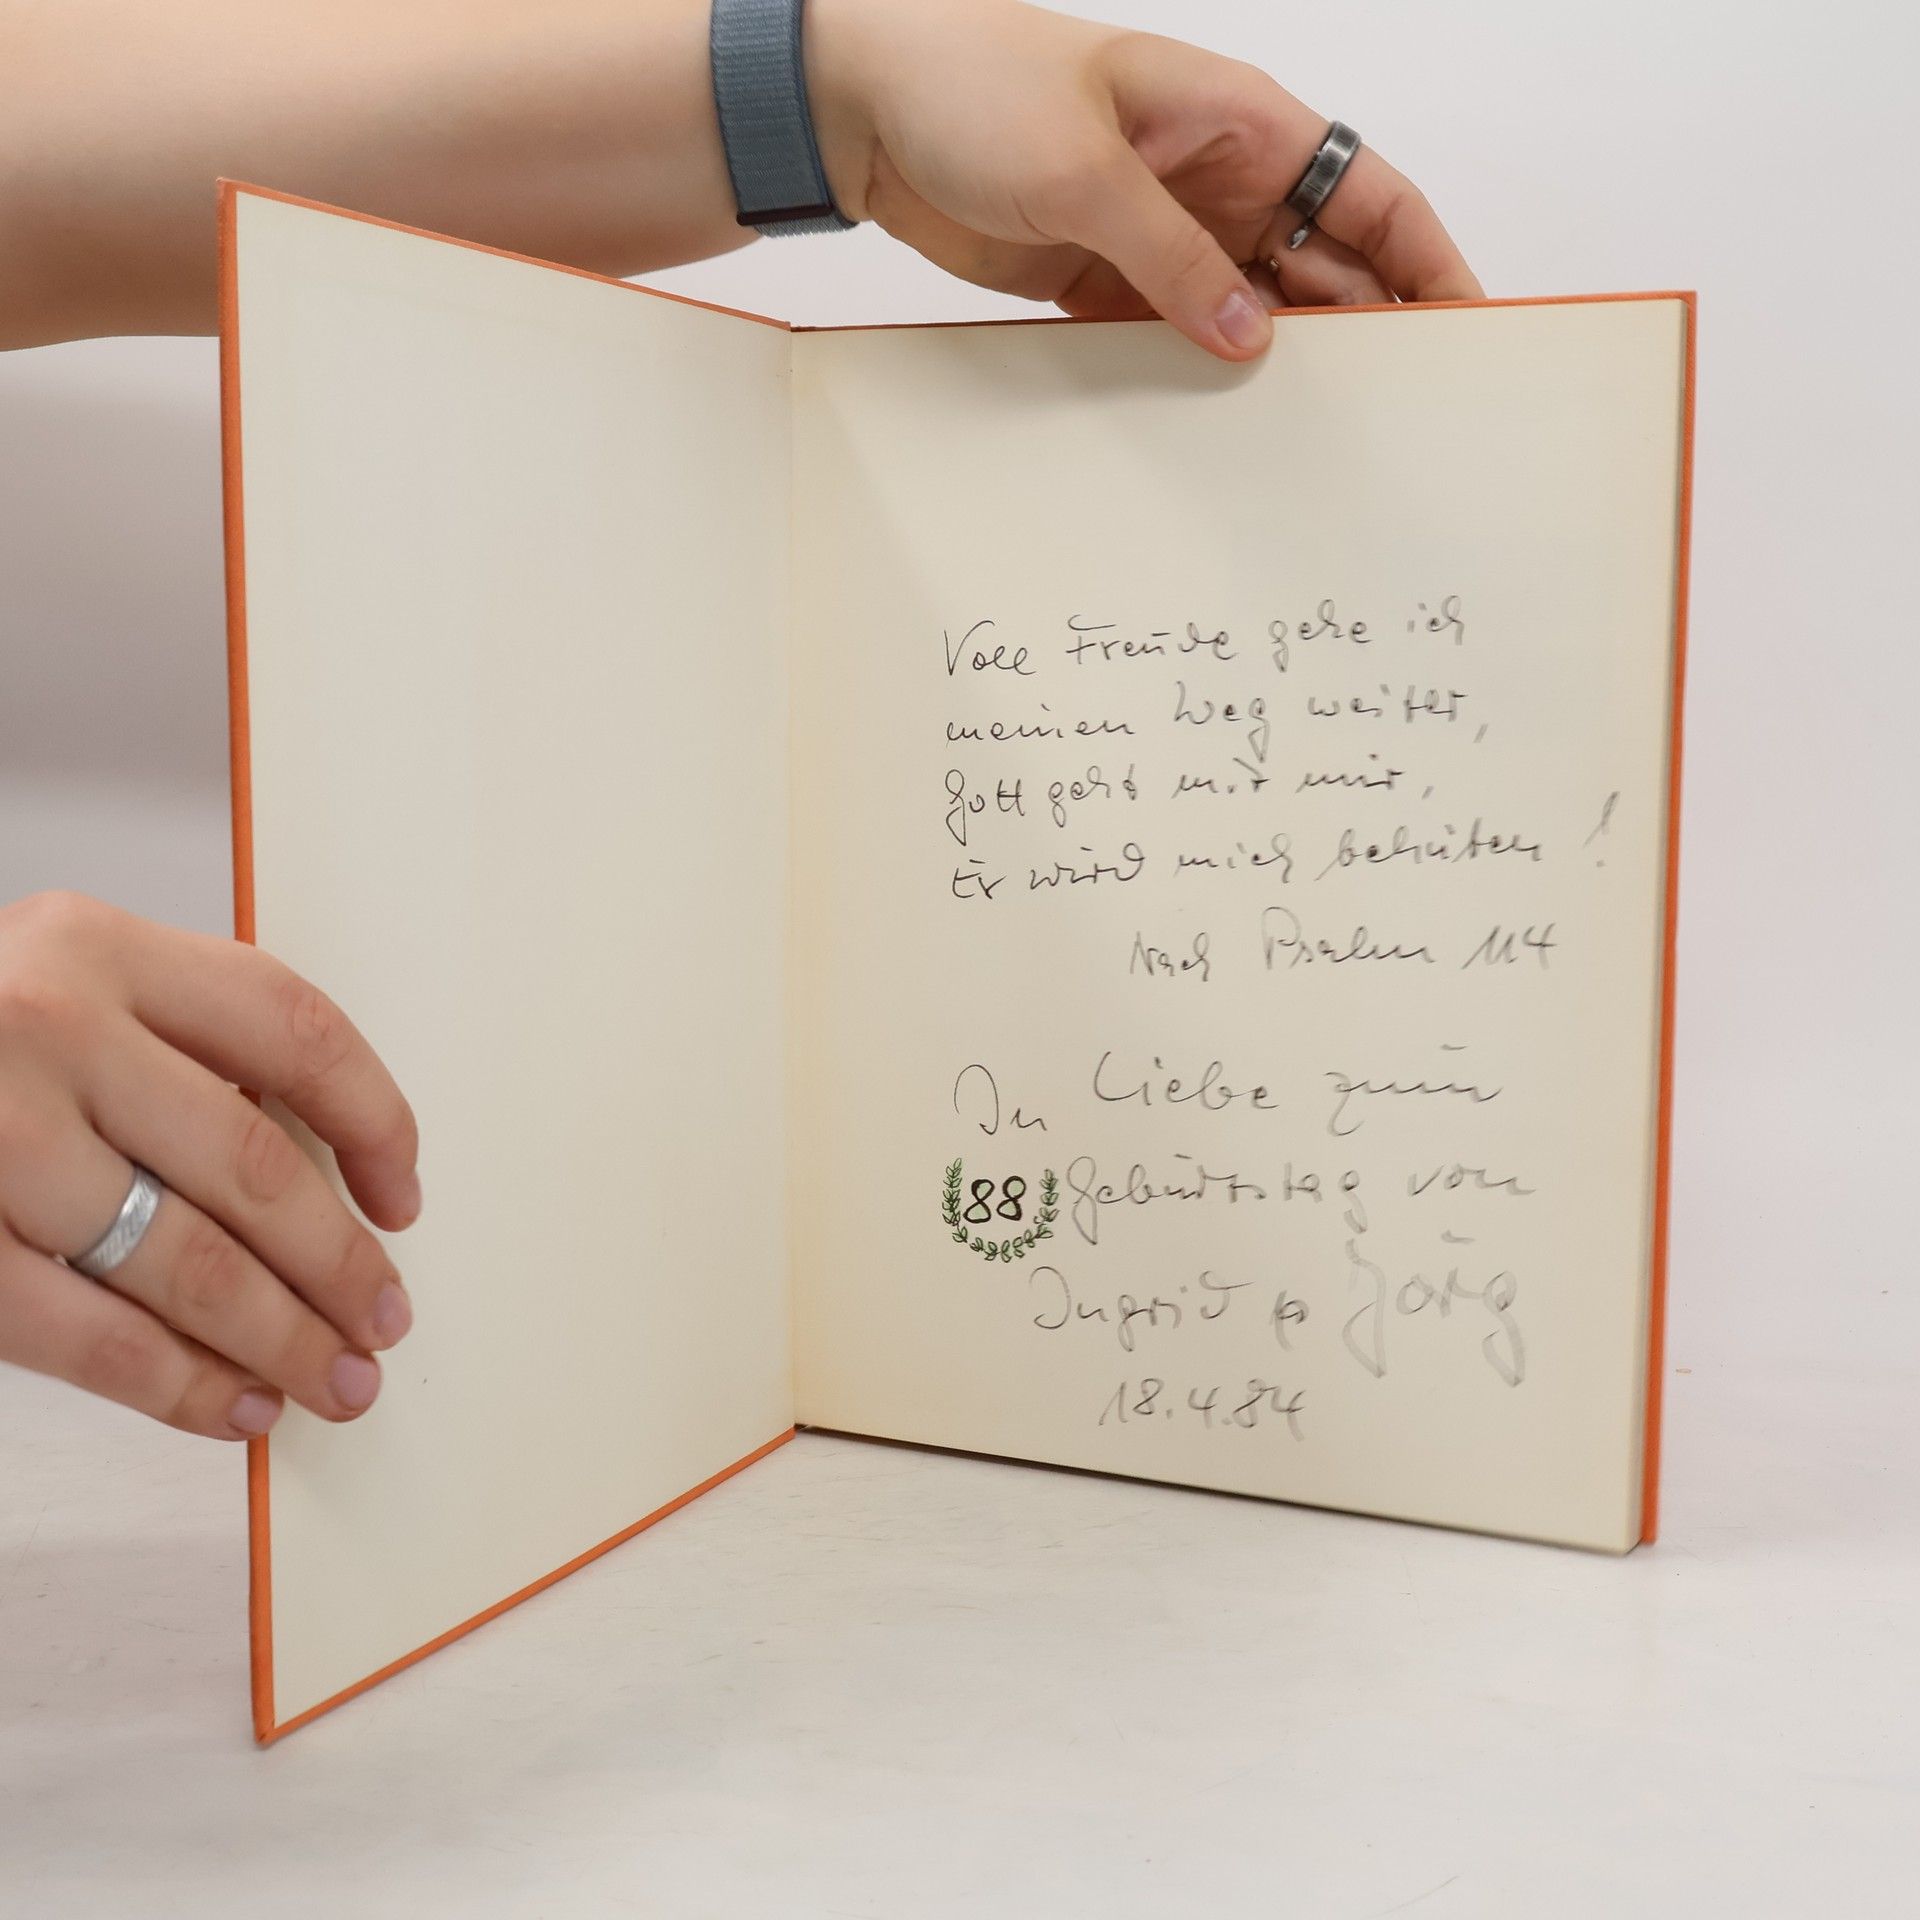 Voll Freude gehe ich
meinen Weg weiter,
Gott geht mit mir,
Er wird mich behüten!
Nach Psalm 114
In Liebe zum
88 Geburtstag von
Ingrid & Jörg
18.4.84